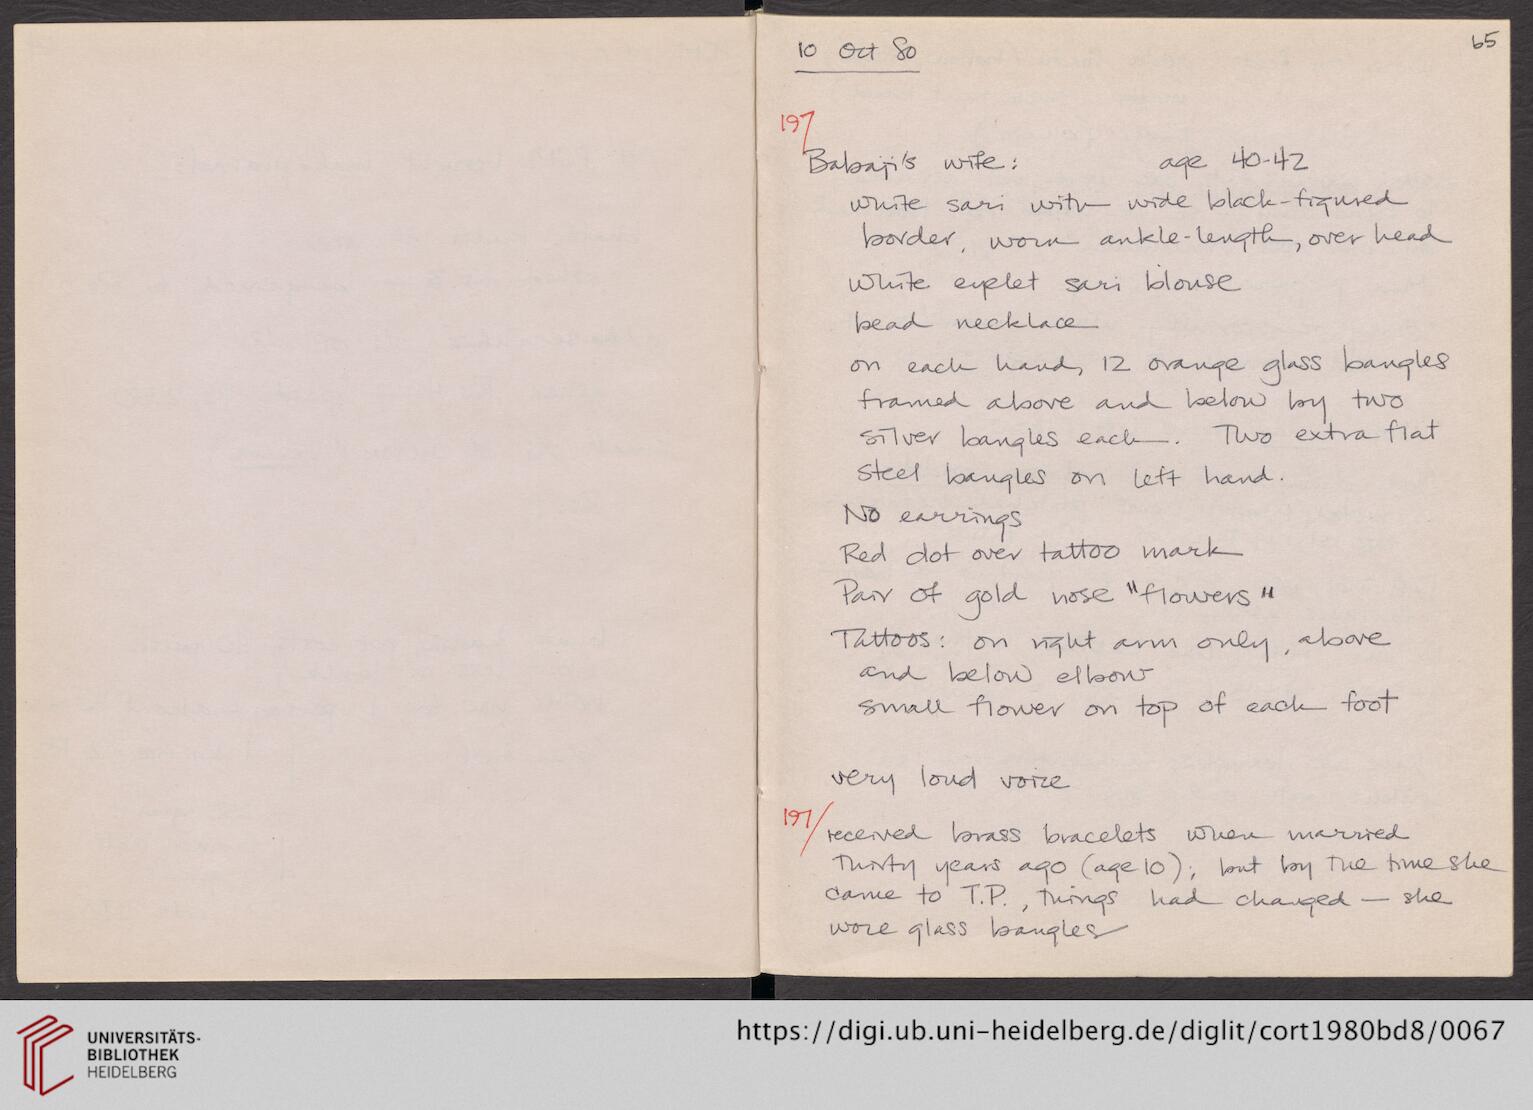 10 Oct 80
65
197/
Babaji's wife: age 40-42
white sari with wide black-figured
border, worn ankle-length, over head
white eyelet sari blouse
bead necklace
on each hand, 12 orange glass bangles
framed above and below by two
silver bangles each. Two extra flat
steel bangles on left hand.
No earrings
Red dot over tattoo mark
Pair of gold nose "flowers"
Tattoos: on right arm only, above
and below elbow
small flower on top of each foot
very loud voice
197/
received brass bracelets when married
thirty years ago (age 10); but by the time she
came to T.P., things had changed — she
wore glass bangles
UNIVERSITÄTS-
BIBLIOTHEK
HEIDELBERG
https://digi.ub.uni-heidelberg.de/diglit/cort1980bd8/0067